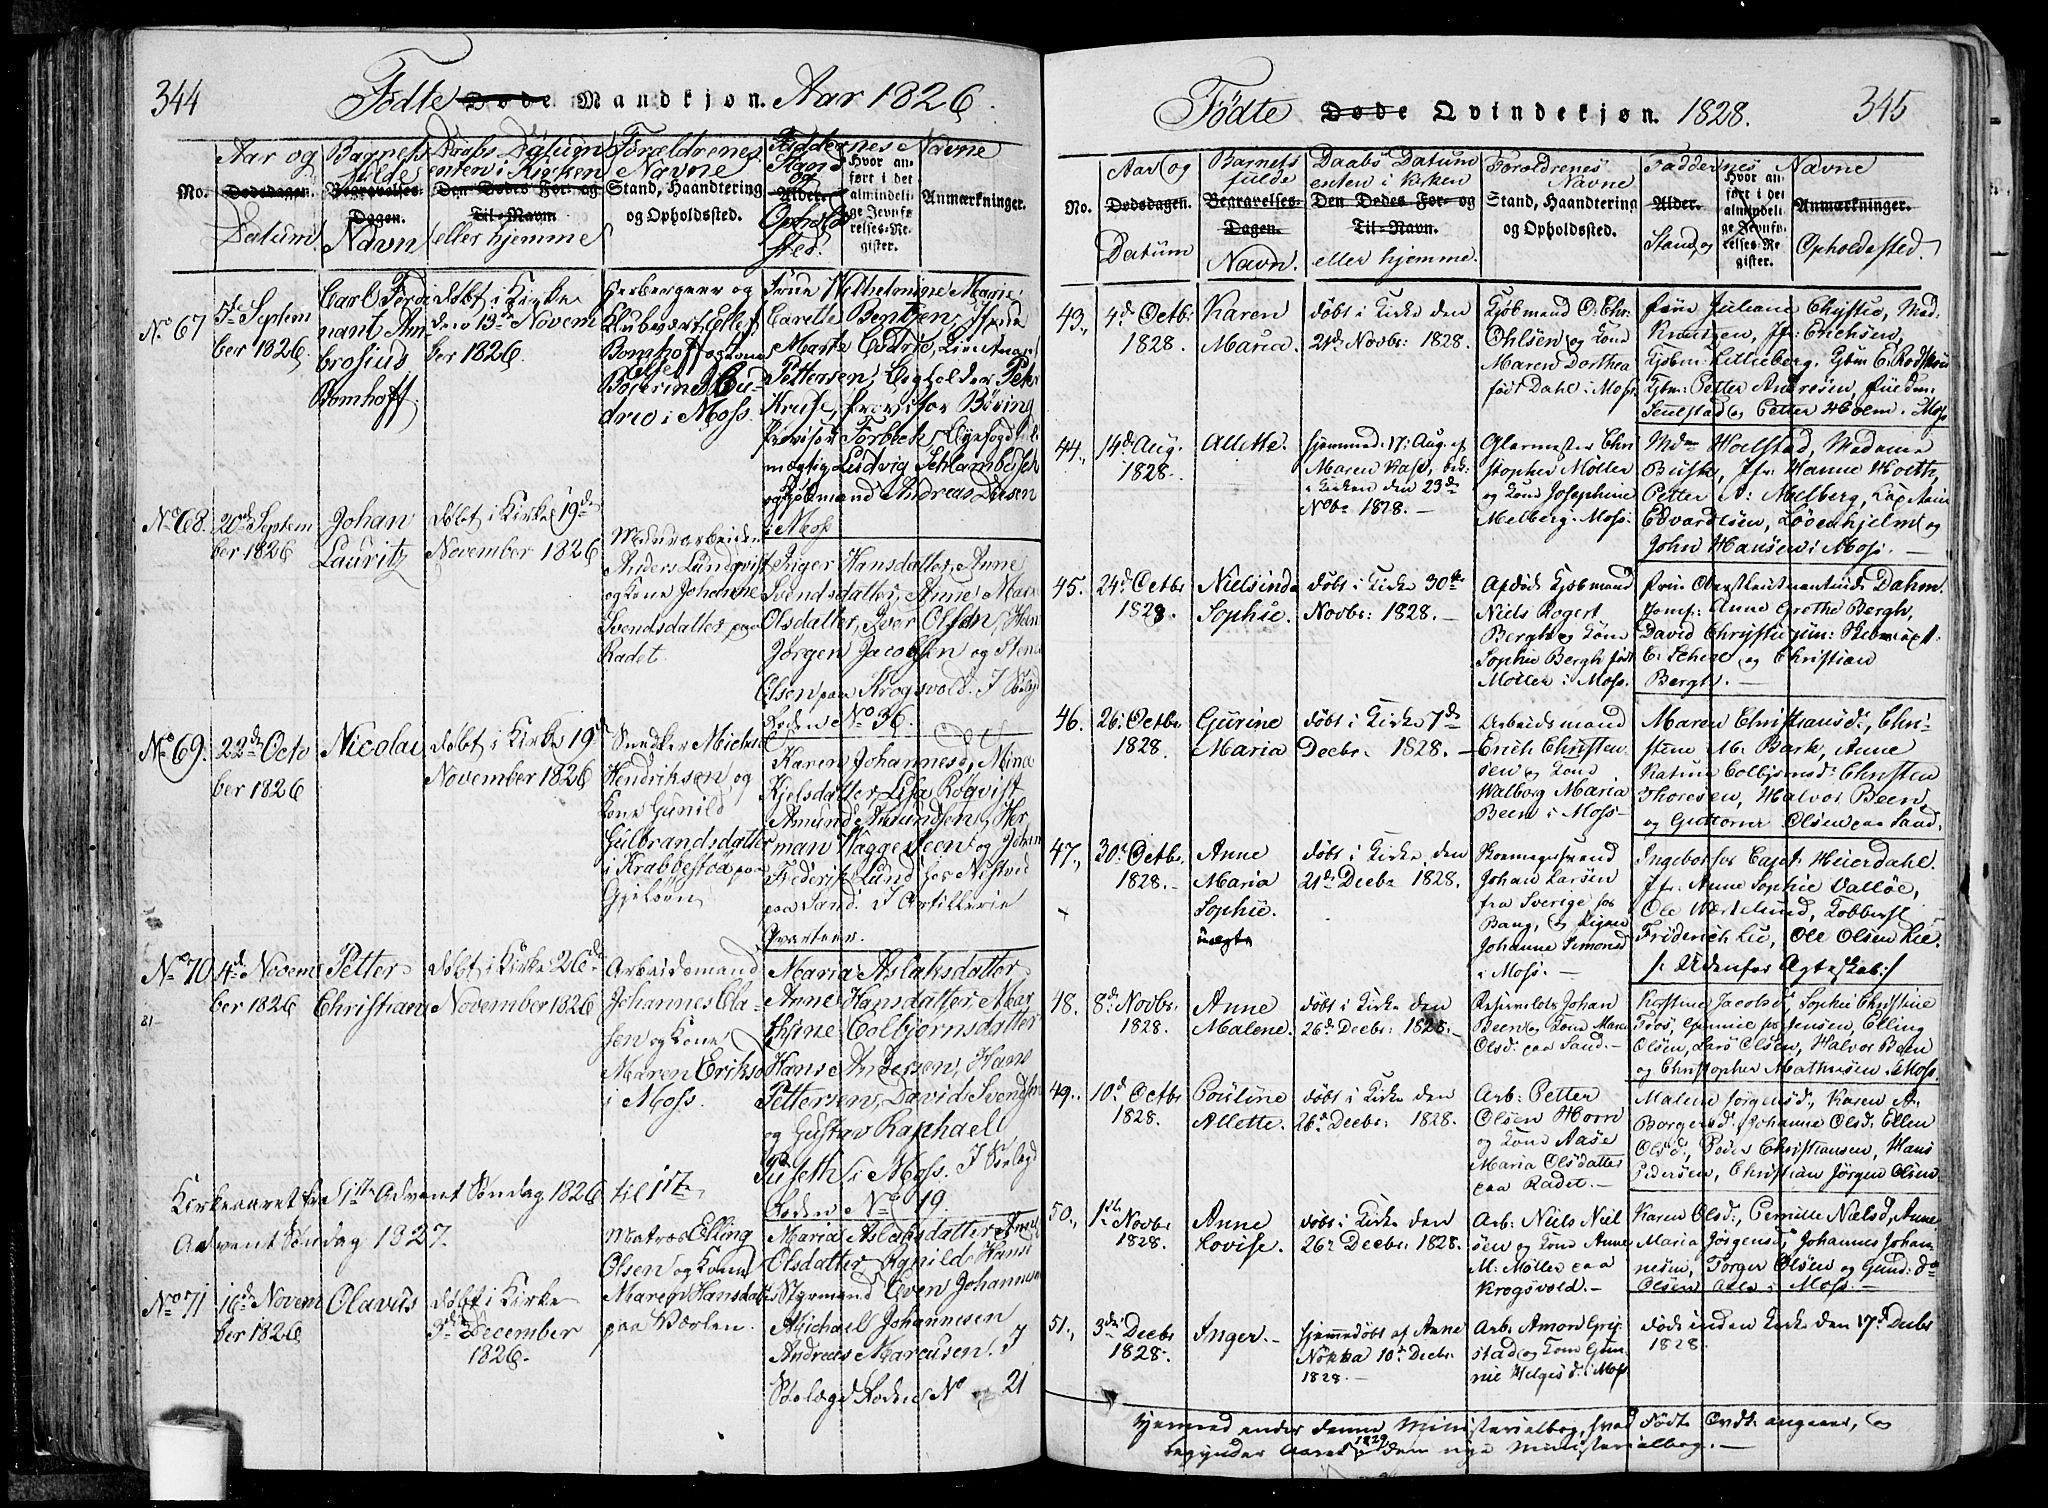 344
Fødte Døde Mandkjøn. Aar 1826.
No.
Aar og
Dødsdagen.
Datum.
Barnets
fulde
Begravelses-
Dagen.
Navn
Daabs Datum
enten i Kirken
Den Dødes For- og
Til-Navn
eller hjemme
Forældrenes
Navne
Stand, Haandtering
og Opholdssted.
Faddernes Navne
Stand
og
Alder.
Opholds
sted.
Hvor an-
ført i det
almindeli-
ge Jevnfø-
relses-Re-
gister.
Anmærkninger.
No 67
5te Septem
ber 1826
Carl Ferdi
nant Am-
brosius
Bomhoff.
døbt i Kirke
den 13de Novem
ber 1826
Herbergeer og
Klubvært Ellef
Bomhoff og Kone
i Moss.
Frue Wilhelmine Marie
Carette Bentzen,
Pettersen,
Kruse, provisor Bøving
Provisor
mægtig Ludvig
og Kjøbmand Andreas
i Moss
No 68.
20de Septem
ber 1826
Johan
Lauritz
døbt i Kirke 19de
November 1826
Muurarbeider
Anders Lundqvist
og Kone Johanne
Svendsdatter paa
Radet.
Inger Hansdatter, Anne
Svendsdatter, Anne Marie
Olsdatter, Iver Olsen,
Jørgen Jacobsen og
Olsen paa Krogsvold. I
Roden No 36.
No 69.
22de Octo
ber 1826
Nicolai
døbt i Kirke 19de
November 1826
Snedker Michael
Hendriksen og
Kone Gunild
Gulbrandsdatter
i Krabbestøa paa
Gjeløen
Karen Johannesd,
Kjelsdatter, Lisa Røqvist
Amund Amundsen, Her
man Waggesteen og Johan
Frederik Lund hos
paa Sand. I Artillerie
Qvarteer.
No 70
4de Novem
ber 1826
Petter
Christian
døbt i Kirke 26de
November 1826
Arbeidsmand
Johannes Cla-
sen og Kone
Maren Eriksd
i Moss.
Maria Aslaksdatter
Anne Hansdatter, Mar
thine Colbjørnsdatter
Hans Andersen, Hans
Pettersen, David Svendsen
og Gustav Raphael
i Moss. I Søelagd
Roden No 19.
Kirkeaaret fra 1ste Advent Søndag 1826 til 1ste
Advent Søndag 1827.
No 71
16de Novem
ber 1826
Olavus
døbt i Kirke
3die December
1826.
Matros Elling
Olsen og Kone
Maren Hansdatter
paa Værlen.
Maria Aslaksdatter,
Olsdatter, Ragnild Hans
Styrmand Even Johannesen
Michael Johannesen
Andreas Marcusen. I
Søelægd Roden No 21
345
Fødte Døde Qvindekjøn. 1828.
No.
Aar og
Dødsdagen.
Datum
Barnets
fulde
Begravelses-
Dagen.
Navn.
Daabs Datum
enten i Kirken
Den Dødes For- og
Til-Navn.
eller hjemme.
Forældrenes
Navne
Stand, Haandtering
og Opholdssted.
Faddernes Navne
Alder.
Stand, og
Hvor an-
ført i det
almindeli-
ge Jevnfø-
relses-Re-
gister.
Anmærkninger.
Opholdssted.
43.
4de Octbr
1828.
Karen
Maria.
døbt i Kirke
21de Novbr: 1828.
Kjøbmand O: Chr:
Ohlsen og Kone
Maren Dorthea
født Dahl i Moss.
Frue Juliane Chrystie, Mad.
Knutzen, Jfr: Erichsen,
Petter Andresen,
og Petter Holm. Moss
44.
14de Aug.
1828.
Allethe.
hjemmed. 17: Aug. af
Maren Kass, bek:
i Kirken den 23de
Nvbr 1828.
Glarmester Chri
stopher Møller
og Kone Josephine
Melberg. Moss.
Mdm Hoelstad, Madame
Busk, Jfr: Hanne Hoeth,
Petter A: Melberg, Captain
Edvardsen, Løvenhjelm og
John Hansen i Moss.
45.
24de Octbr
1828.
Nielsinda
Sophie.
døbt i Kirke 30te
Novbr: 1828.
Afdøde Kjøbmand
Niels Rogert
Bergh og Kone
Sophie Bergh født
Møller i Moss.
Frue Oberstlieutnantinde Dahm.
Jomf: Anne Grethe Bergh,
David Chrystie jun:
og Christian
Bergh.
46.
26: Octbr
1828.
Gurine
Maria
døbt i Kirke 7de
Decbr: 1828.
Arbeidsmand
Erich Christen
sen og Kone
Walborg Maria
Been i Moss
Maren Christiansd:, Chri-
stine M: Bark, Anne
Katrine Colbjørnsd: Christen
Thoresen, Halvor Been,
og Guttorm Olsen paa Sand.
47.
30te Octbr.
1828.
Anne
Maria
Sophie.
uægte
døbt i Kirke den
21de Decbr 1828.
Johan Larsen
fra Sverige hos
Bang, og Pigen
Johanne Simonsd
i Moss.
Ingebor hos Capt: Heierdahl.
Jfr. Anne Sophie Valløe,
Ole Kobberst
Friderich Lie, Ole Olsen Lie.
/: Udenfor Ægteskab:/
48.
8de Novbr:
1828.
Anne
Malene.
døbt i Kirke den
26de Decbr: 1828.
Johan
Been og Kone Maren
Olsd: paa Sand.
Kirstine Jacobsd, Sophie Christine
Olsen, Lars Olsen, Halvor Been
og Christopher Mathiesen i Moss.
49.
10de Octbr
1828.
Pouline
Allette.
døbt i Kirke den
26de Decbr: 1828.
Arb: Petter
Olsen Horn
og Kone Aase
Maria Olsdatter
paa Radet.
Malene Jørgensd, Karen A:
Borgersd: Johanne Olsd: Ellen
Olsd, Peder Christiansen, Hans
Pedersen, Christian Jørgen Olsen
50.
1ste Novbr
1828.
Anne
Lovise.
døbt i Kirke den
26de Decbr: 1828.
Arb: Niels Niel
sen og Kone Anne
M: Møller paa
Krogsvold.
Karen Olsd:, Pernille Nielsd, Anne
Maria Jørgensd, Johannes Johan-
nesen, Torger Olsen og Gund:
Olsen Alle i Moss.
51.
3die Decbr
1828.
Inger.
hjemmedøbt af Anne
Nøkka 10de Decbr.
1828.
Arb: Amon
stad og Kone Gun-
nie Helgesd: i Moss
døde inden Kirke den 17de Decbr
1828.
Hjermed ender denne Ministerialbog, hvad Fødte Qvdk: angaaer, og
begynder Aaret 1829 den nye Ministerialbog.